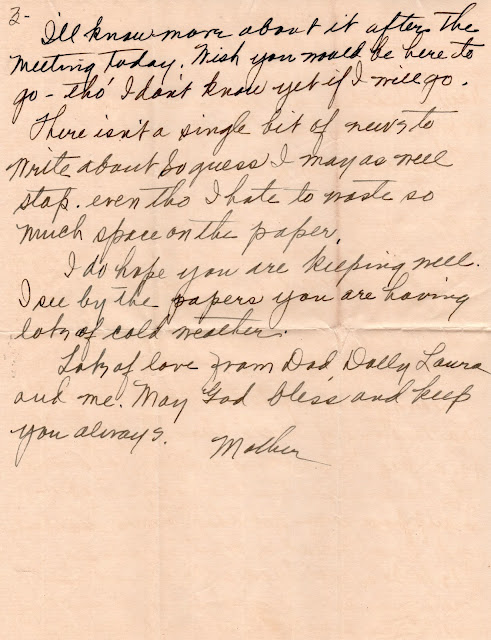 3-
I'll know more about it after the
meeting today. Wish you would be here to
go - tho' I don't know yet if I will go.
There isn't a single bit of news to
write about so guess I may as well
stop. even tho I hate to waste so
much space on the paper.
I do hope you are keeping well.
I see by the papers you are having
lots of cold weather.
Lots of love from Dad Dolly Laura
and me. May God bless and keep
you always.
Mother